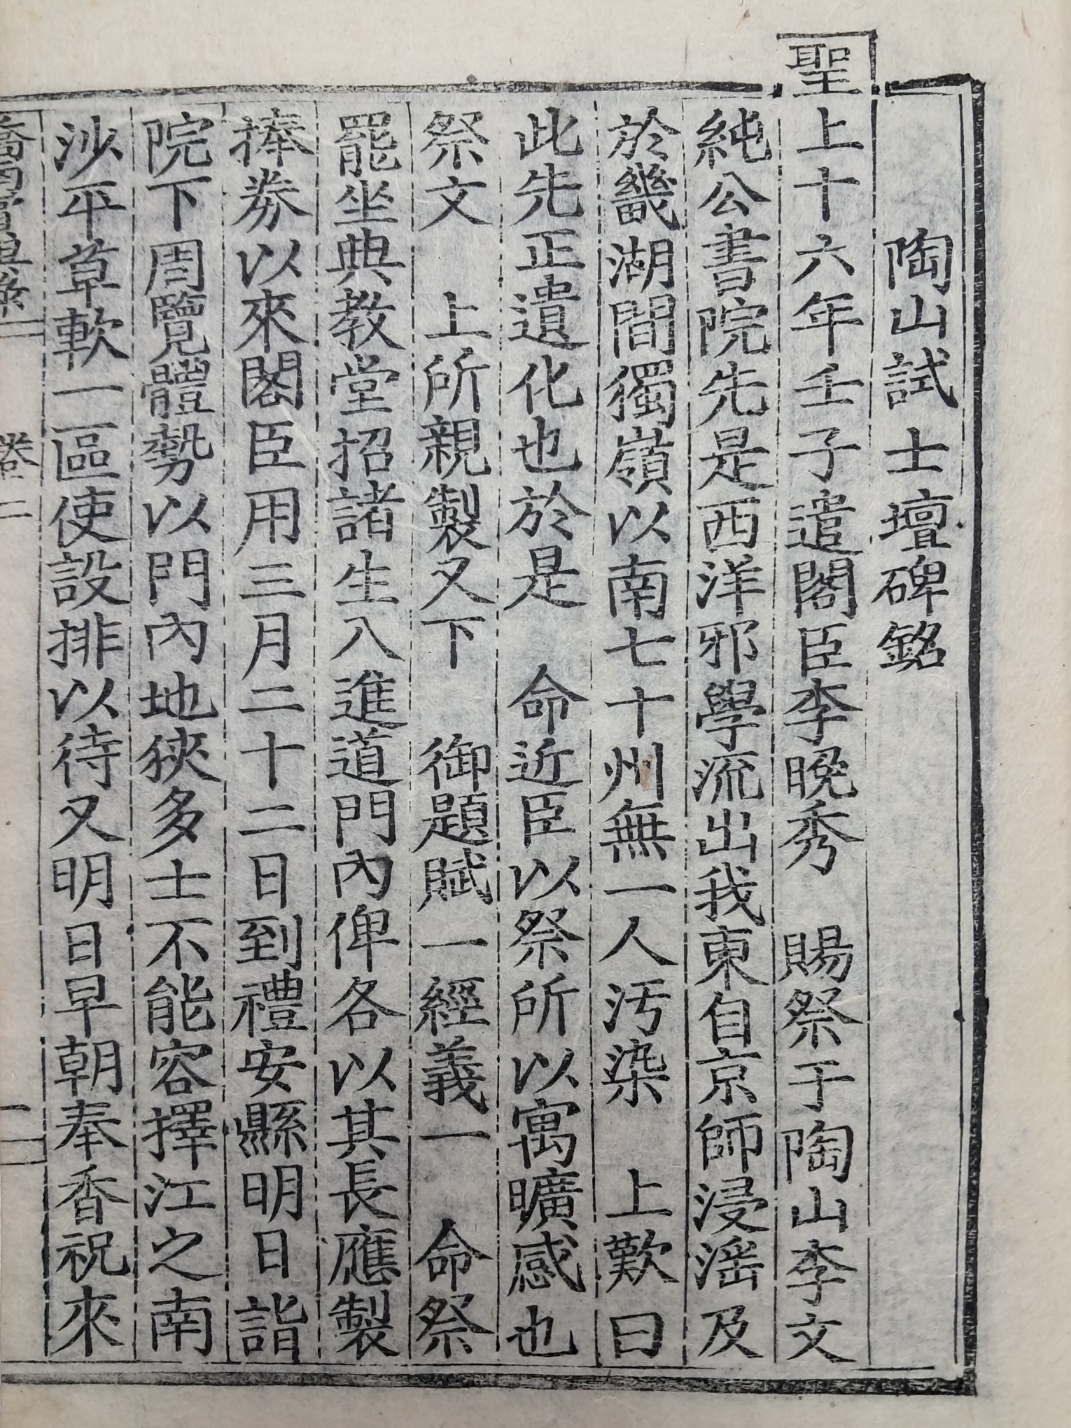 陶山試士壇碑銘
聖上十六年壬子遣閣臣李晚秀 賜祭于陶山李文
純公書院先是西洋邪學流出我東自京師浸淫及
於畿湖間獨嶺以南七十州無一人汚染 上歎曰
此先正遺化也於是 命近臣以祭所以寓曠感也
祭文 上所親製又下 御題賦一經義一 命祭
罷坐典教堂招諸生入進道門內俾各以其長應製
捧券以來閣臣用三月二十二日到禮安縣明日詣
院下周覽體勢以門內地狹多士不能容擇江之南
沙平草軟一區使設排以待又明日早朝奉香祝來
卷二